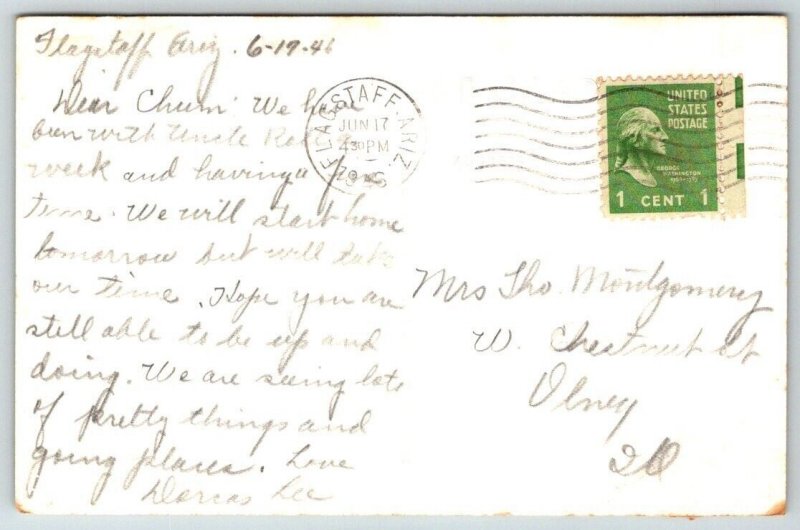 Flagstaff Ariz. 6-17-46
Dear Chum: We have
been with Uncle
week and having a fine
time. We will start home
tomorrow but will take
our time. Hope you are
still able to be up and
doing. We are seeing lots
of pretty things and
going places. Love
Dorcas Lee
FLAGSTAFF. ARIZ.
JUN 17
30 PM
1946
UNITED
STATES
POSTAGE
GEORGE
WASHINGTON
1 CENT 1
Mrs Tho. Montgomery
W. Chestnut St
Olney
Ill